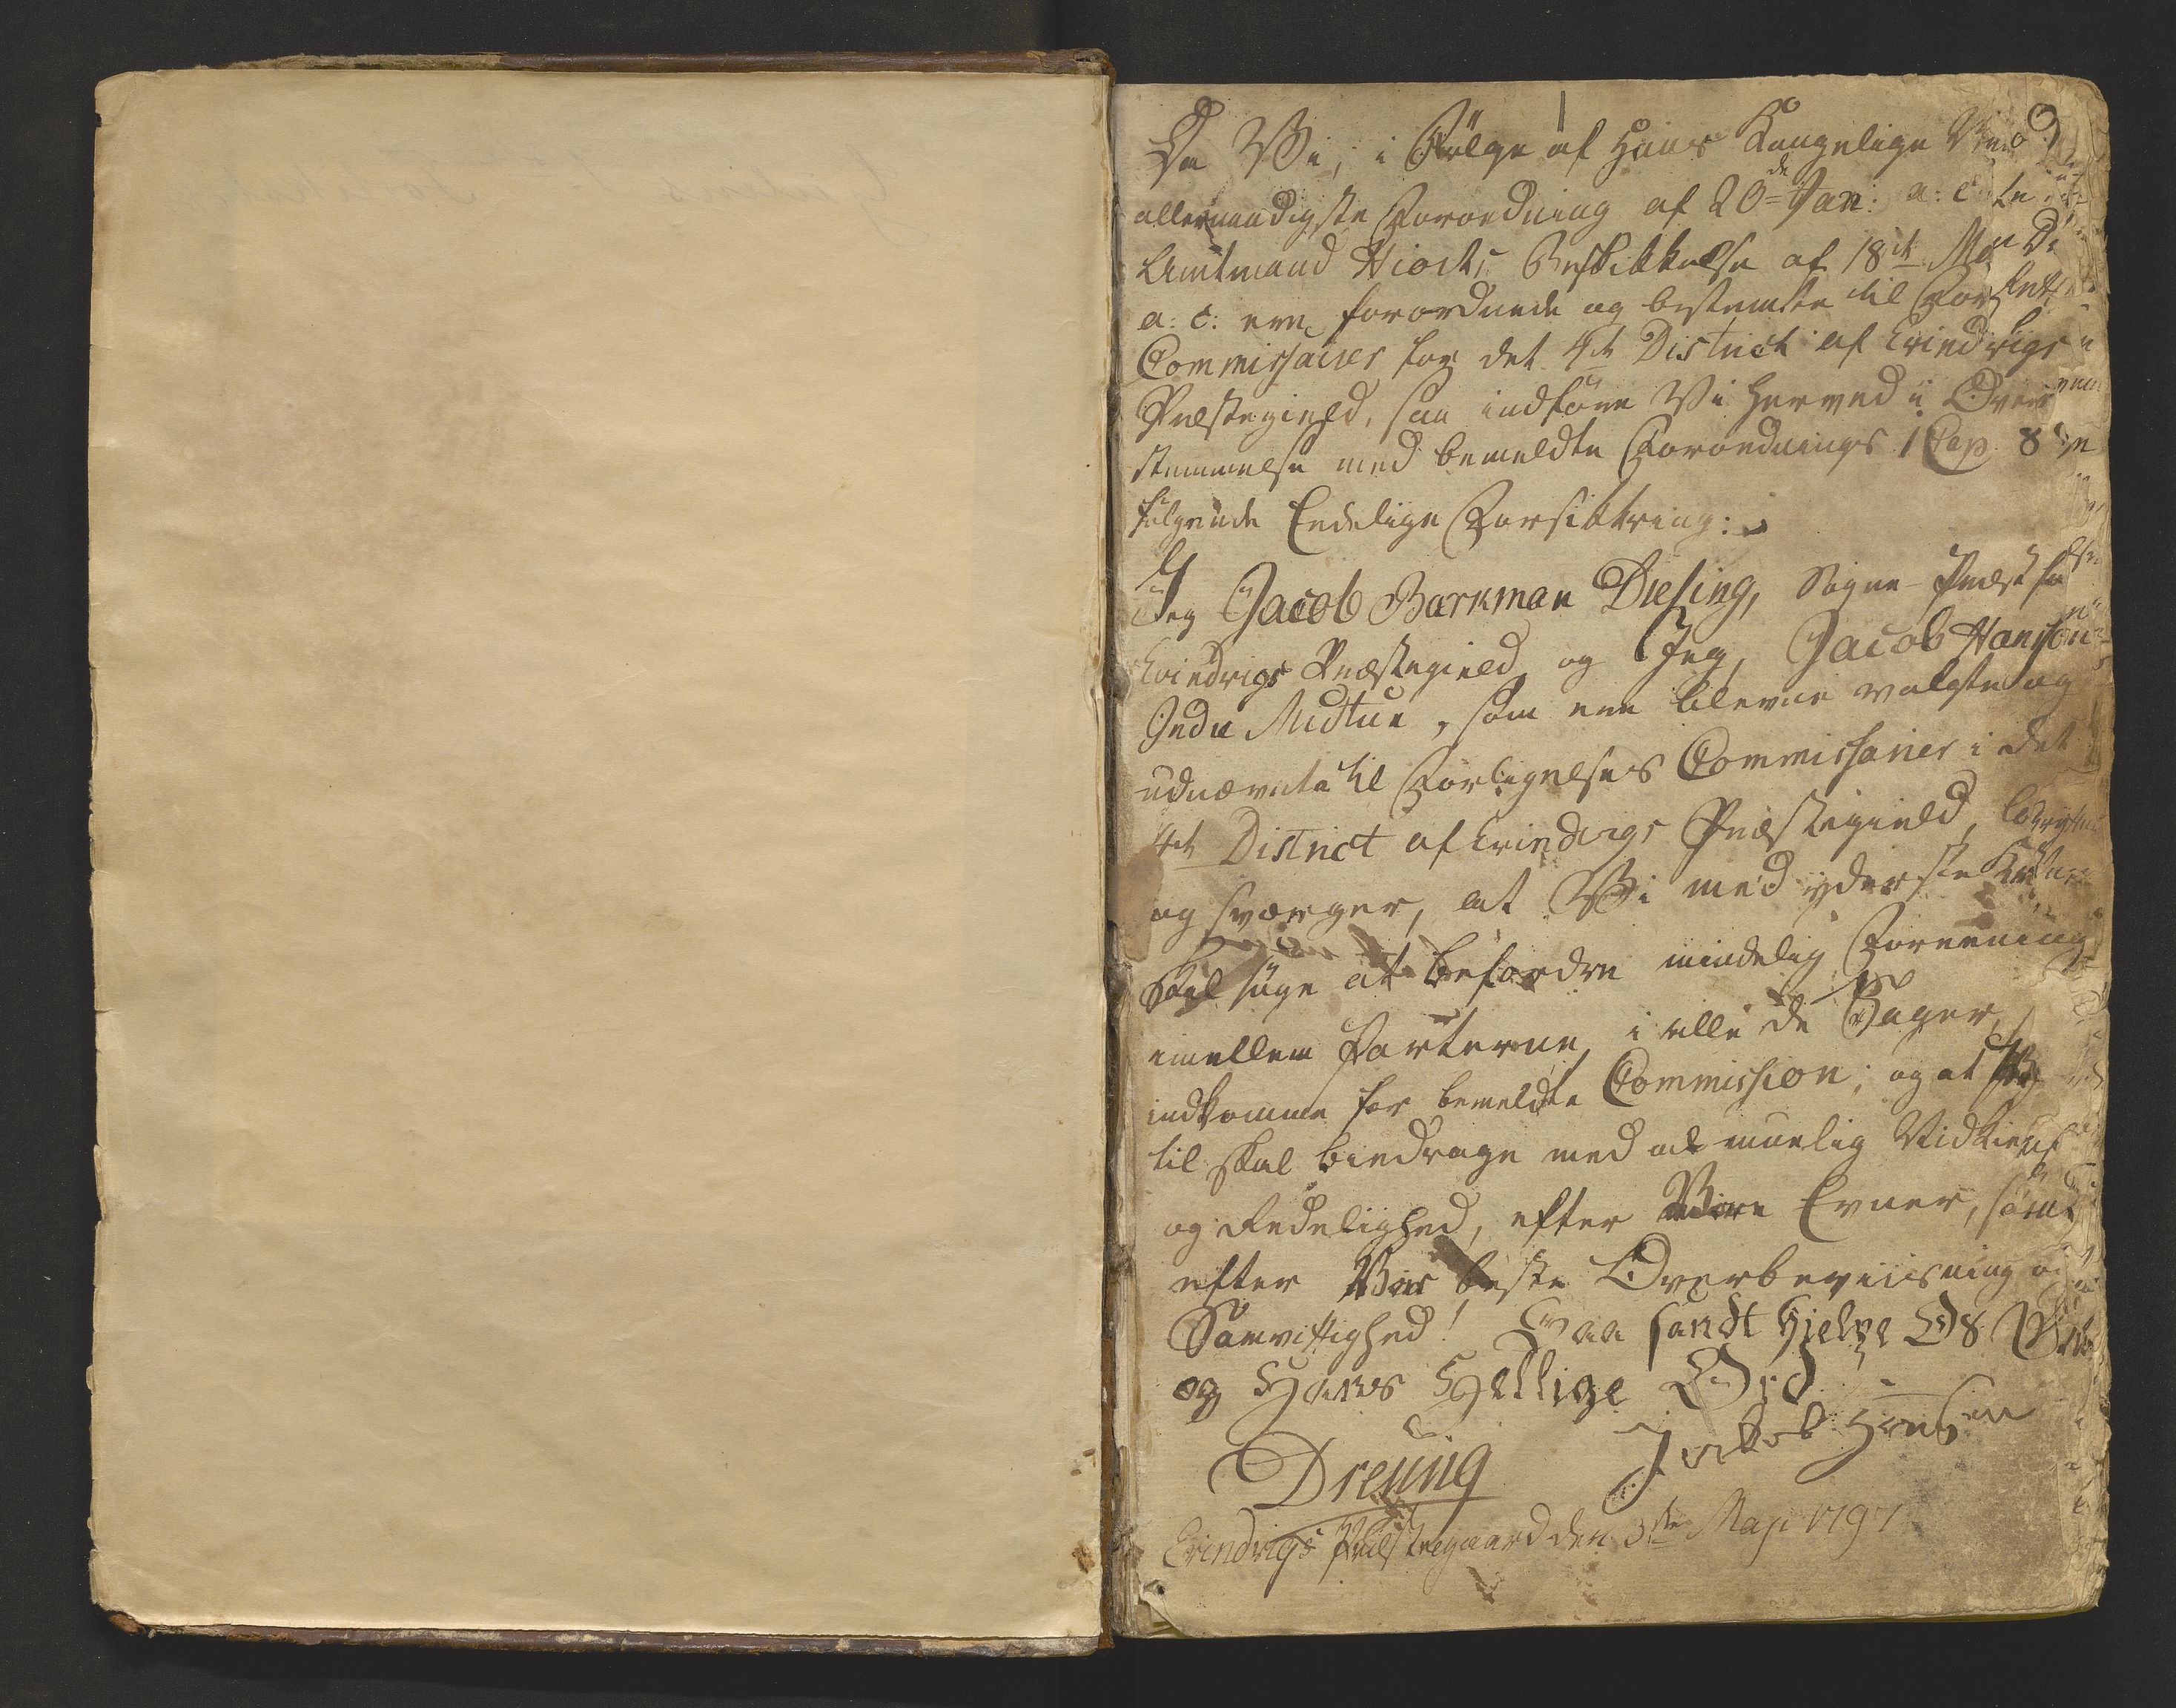 Da Vi, i Følge af Hans Kongelige
allernaadigste Forordning af 20de Jan: a: c
Amtmand Hiorts Beskikkelse af 18de
a: c: ere forordnede og bestemte til
Commissairer for det 4de District af Evindvigs
Præstegield, saa indføre Vi herved i Overens
stemmelse med bemeldte Forordnings 1 Cap. 8
følgende Eedelige Forsikkring:
Jeg Jacob Barkman Dresing, Sogne-Præst
Evindvigs Præstegield og Jeg, Jacob Hansøn
Indre Midtun, som ere blevne valgte og
udnævnte til Forligelses Commissairer i det
4de District af Evindvigs Præstegield,
og sværger, at Vi med yderste
Skal søge at befordre mindelig Foreening
imellem Parterne, i alle de Sager,
indkomme for bemeldte Commission; og at
til skal biedrage med al muelig Nidkierhed
og Redelighed, efter Vore Evner, samt
efter Vor beste Overbeviisning
Samvittighed! Saa sandt hjelpe Os Gud
og Hans Hellige Ord
Dresing Jackob Hansen
Evindvigs Præstegaard den 3de Maji 1797